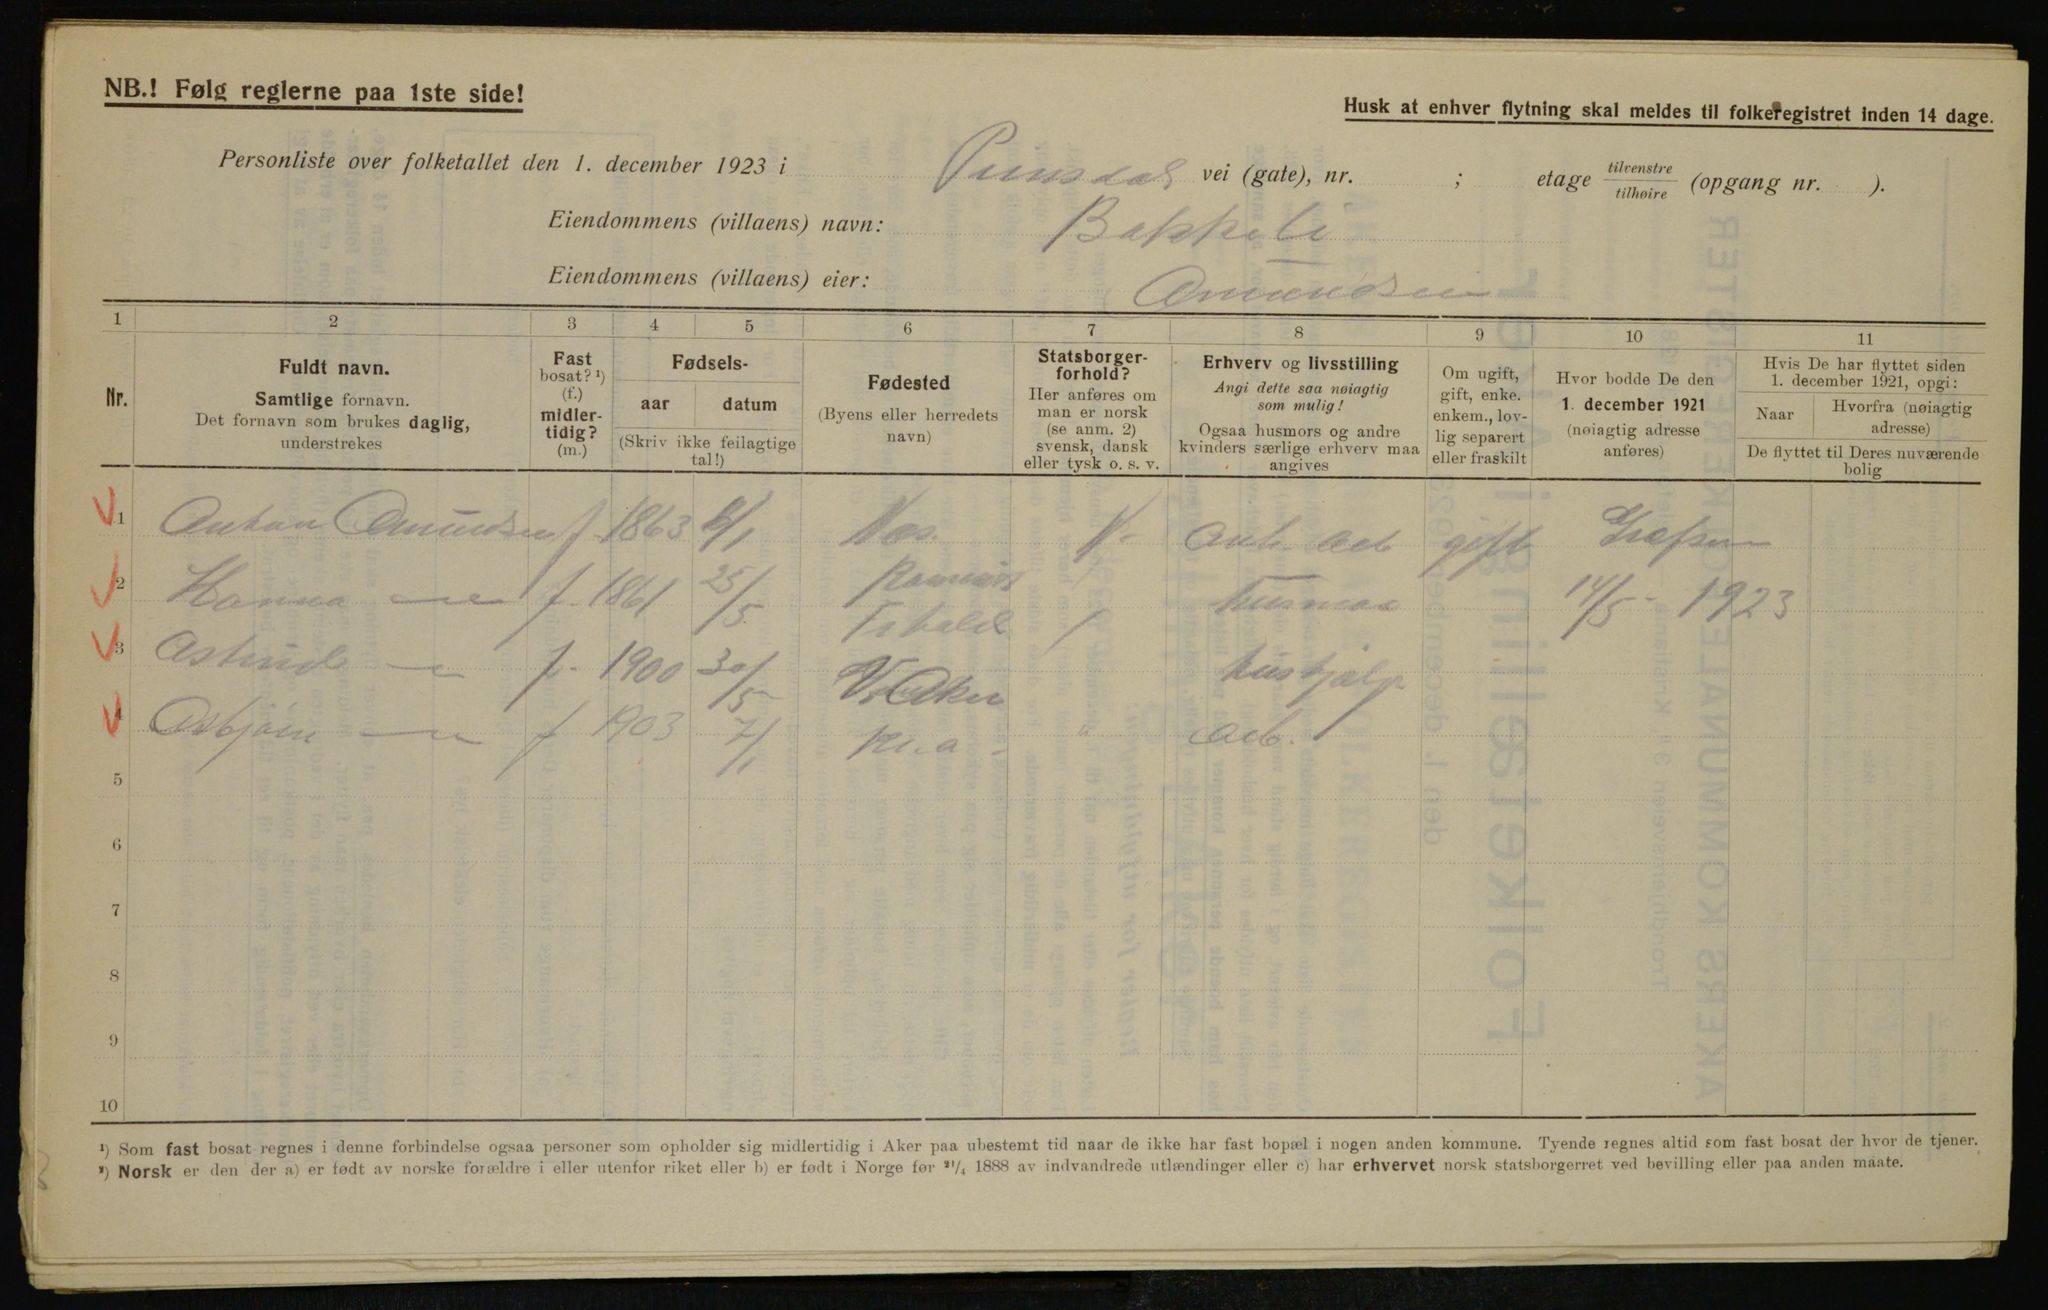 NB.! Følg reglerne paa 1ste side!
Husk at enhver flytning skal meldes til folkeregistret inden 14 dage.
Personliste over folketallet den 1. december 1923 i vei (gate), nr. ; etage tilvenstre tilhøire (opgang nr. ).
Eiendommens (villaens) navn: Bakkeli
Eiendommens (villaens) eier: Amundsen
1 2 3 4 5 6 7 8 9 10 11
Nr.
Fuldt navn.
Samtlige fornavn.
Det fornavn som brukes daglig,
understrekes
Fast
bosat? ¹)
(f.)
midler-
tidig?
(m.)
Fødsels-
aar datum
(Skriv ikke feilagtige
tal!)
Fødested
(Byens eller herredets
navn)
Statsborger-
forhold?
Her anføres om
man er norsk
(se anm. 2)
svensk, dansk
eller tysk o. s. v.
Erhverv og livsstilling
Angi dette saa nøiagtig
som mulig!
Ogsaa husmors og andre
kvinders særlige erhverv maa
angives
Om ugift,
gift, enke.
enkem., lov-
lig separert
eller fraskilt
Hvor bodde De den
1. december 1921
(nøiagtig adresse
anføres)
Hvis De har flyttet siden
1. december 1921, opgi:
Naar Hvorfra (nøiagtig
adresse)
De flyttet til Deres nuværende
bolig
1 Anton Amundsen f. 1863 6/1 Næs. N- gift Grefsen
2 Hanna — f. 1861 25/5 husmor 14/5 - 1923
3 Astrid — f. 1900 30/5 V. Aker hushjælp
4 Asbjørn — f 1903 7/1 Kr.a - " Arb.
5
6
7
8
9
10
¹) Som fast bosat regnes i denne forbindelse ogsaa personer som opholder sig midlertidig i Aker paa ubestemt tid naar de ikke har fast bopæl i nogen anden kommune. Tyende regnes altid som fast bosat der hvor de tjener.
²) Norsk er den der a) er født av norske forældre i eller utenfor riket eller b) er født i Norge før ²¹/₄ 1888 av indvandrede utlændinger eller c) har erhvervet norsk statsborgerret ved bevilling eller paa anden maate.